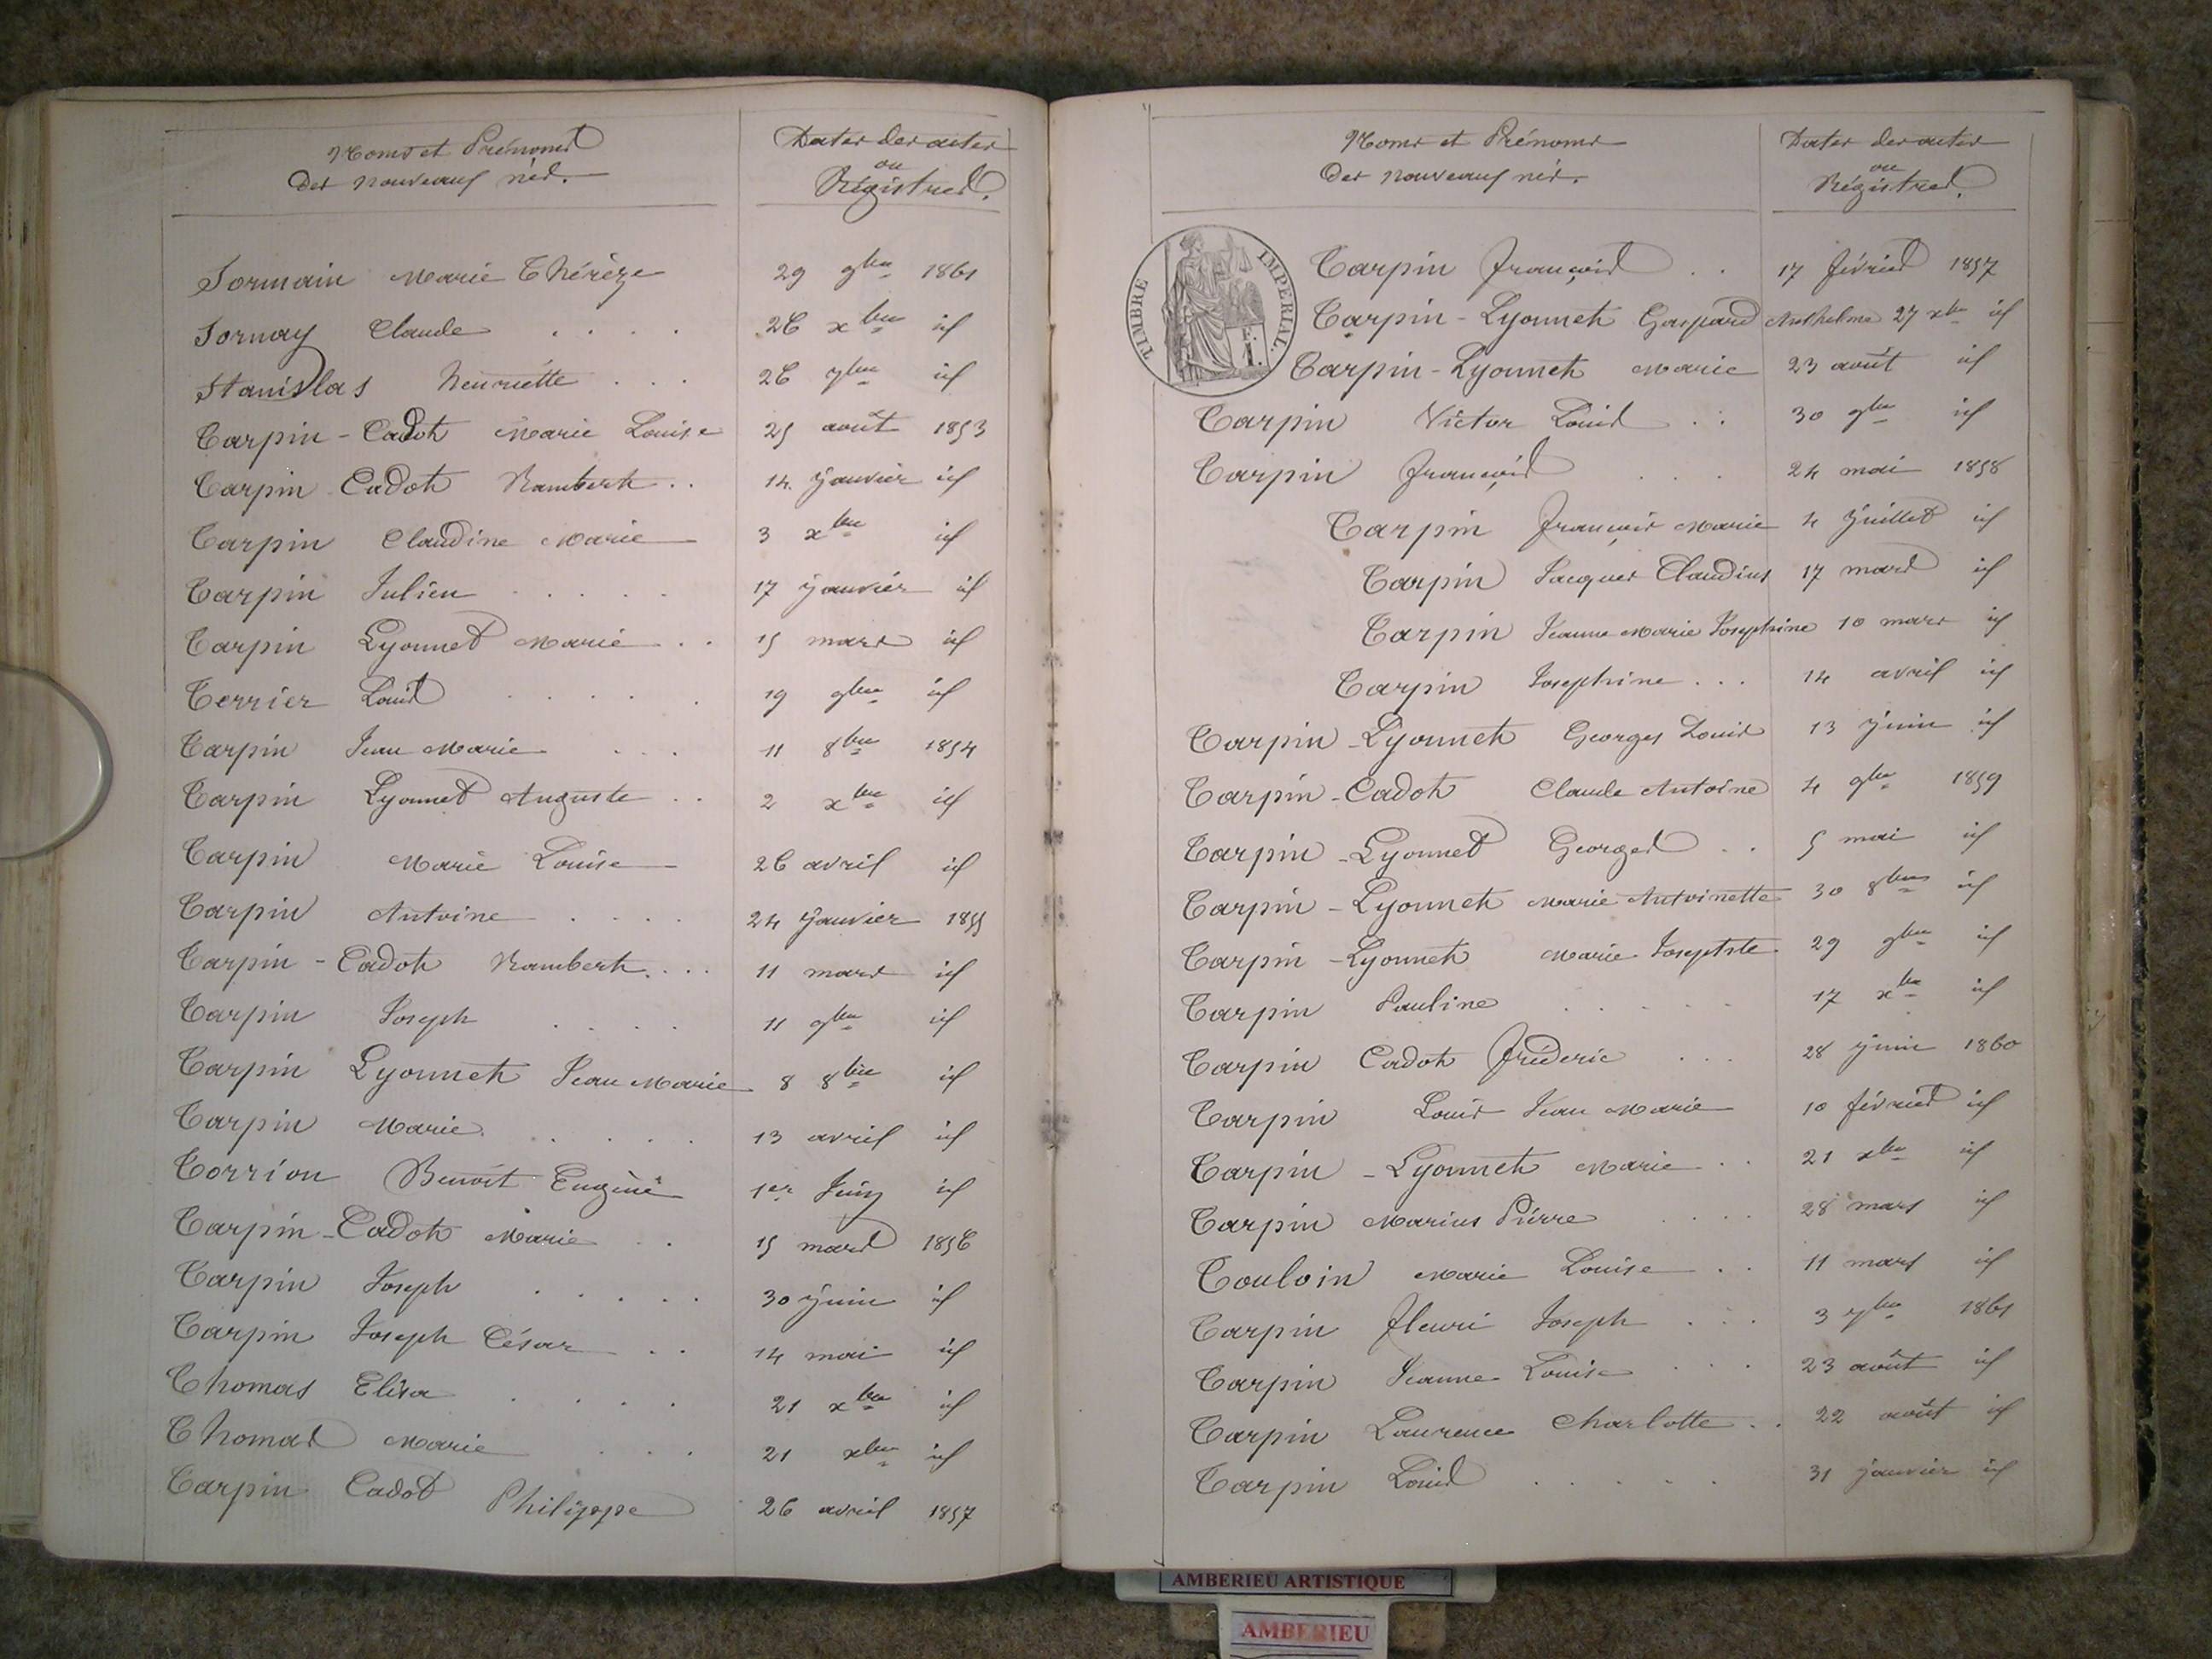 Noms et Prénoms
des nouveaux nés.
Dates des actes
ou
Régistres.
Sormain Marie Thérèze 29 9bre 1861
Sornay Claude . . . . 26 xbre id
Stanislas Henriette . . . 26 7bre id
Tarpin - Cadot Marie Louise 25 août 1853
Tarpin Cadot Rambert . . 14 janvier id
Tarpin Claudine Marie 3 xbre id
Tarpin Julien . . . . . 17 janvier id
Tarpin Lyonnet Marie . . 15 mars id
Terrier Louis . . . . . 19 9bre id
Tarpin Jean Marie . . . 11 8bre 1854
Tarpin Lyonnet Auguste . . 2 xbre id
Tarpin Marie Louise 26 avril id
Tarpin Antoine . . . . 24 janvier 1855
Tarpin - Cadot Rambert . . . . 11 mars id
Tarpin Joseph . . . . 11 9bre id
Tarpin Lyonnet Jean Marie 8 8bre id
Tarpin Marie . . . . . 13 avril id
Torrion Benoit Eugène 1er Juin id
Tarpin - Cadot Marie . . 15 mars 1856
Tarpin Joseph . . . . . 30 juin id
Tarpin Joseph César . . 14 mai id
Thomas Elisa . . . . 21 xbre id
Thomas Marie . . . 21 xbre id
Tarpin Cadot Philippe 26 avril 1857
Noms et Prénoms
des nouveaux nés.
Dates des actes
ou
Régistres.
TIMBRE IMPERIAL.
Tarpin François . . 17 février 1857
Tarpin - Lyonnet Gaspard Anthelme 27 xbre id
Tarpin - Lyonnet Marie 23 août id
Tarpin Victor Louis . . 30 9bre id
Tarpin François . . . 24 mai 1858
Tarpin François Marie 4 juillet id
Tarpin Jacques Claudius 17 mars id
Tarpin Jeanne Marie Josephine 10 mars id
Tarpin Josephine . . . 14 avril id
Tarpin - Lyonnet Georges Louis 13 juin id
Tarpin - Cadot Claude Antoine 4 9bre 1859
Tarpin - Lyonnet Georges . . 5 mai id
Tarpin - Lyonnet Marie Antoinette 30 8bre id
Tarpin - Lyonnet Marie 29 9bre id
Tarpin Pauline . . . . . 17 xbre id
Tarpin Cadot Fréderic . . . 28 juin 1860
Tarpin Louis Jean Marie 10 février id
Tarpin - Lyonnet Marie . . 21 xbre id
Tarpin Marius Pierre . . . . 28 mars id
Touloin Marie Louise . . 11 mars id
Tarpin Fleuri Joseph . . . 3 7bre 1861
Tarpin Jeanne Louise . . . 23 août id
Tarpin Laurence Charlotte . . 22 août id
Tarpin Louis . . . . . 31 janvier id
AMBERIEU ARTISTIQUE
AMBERIEU